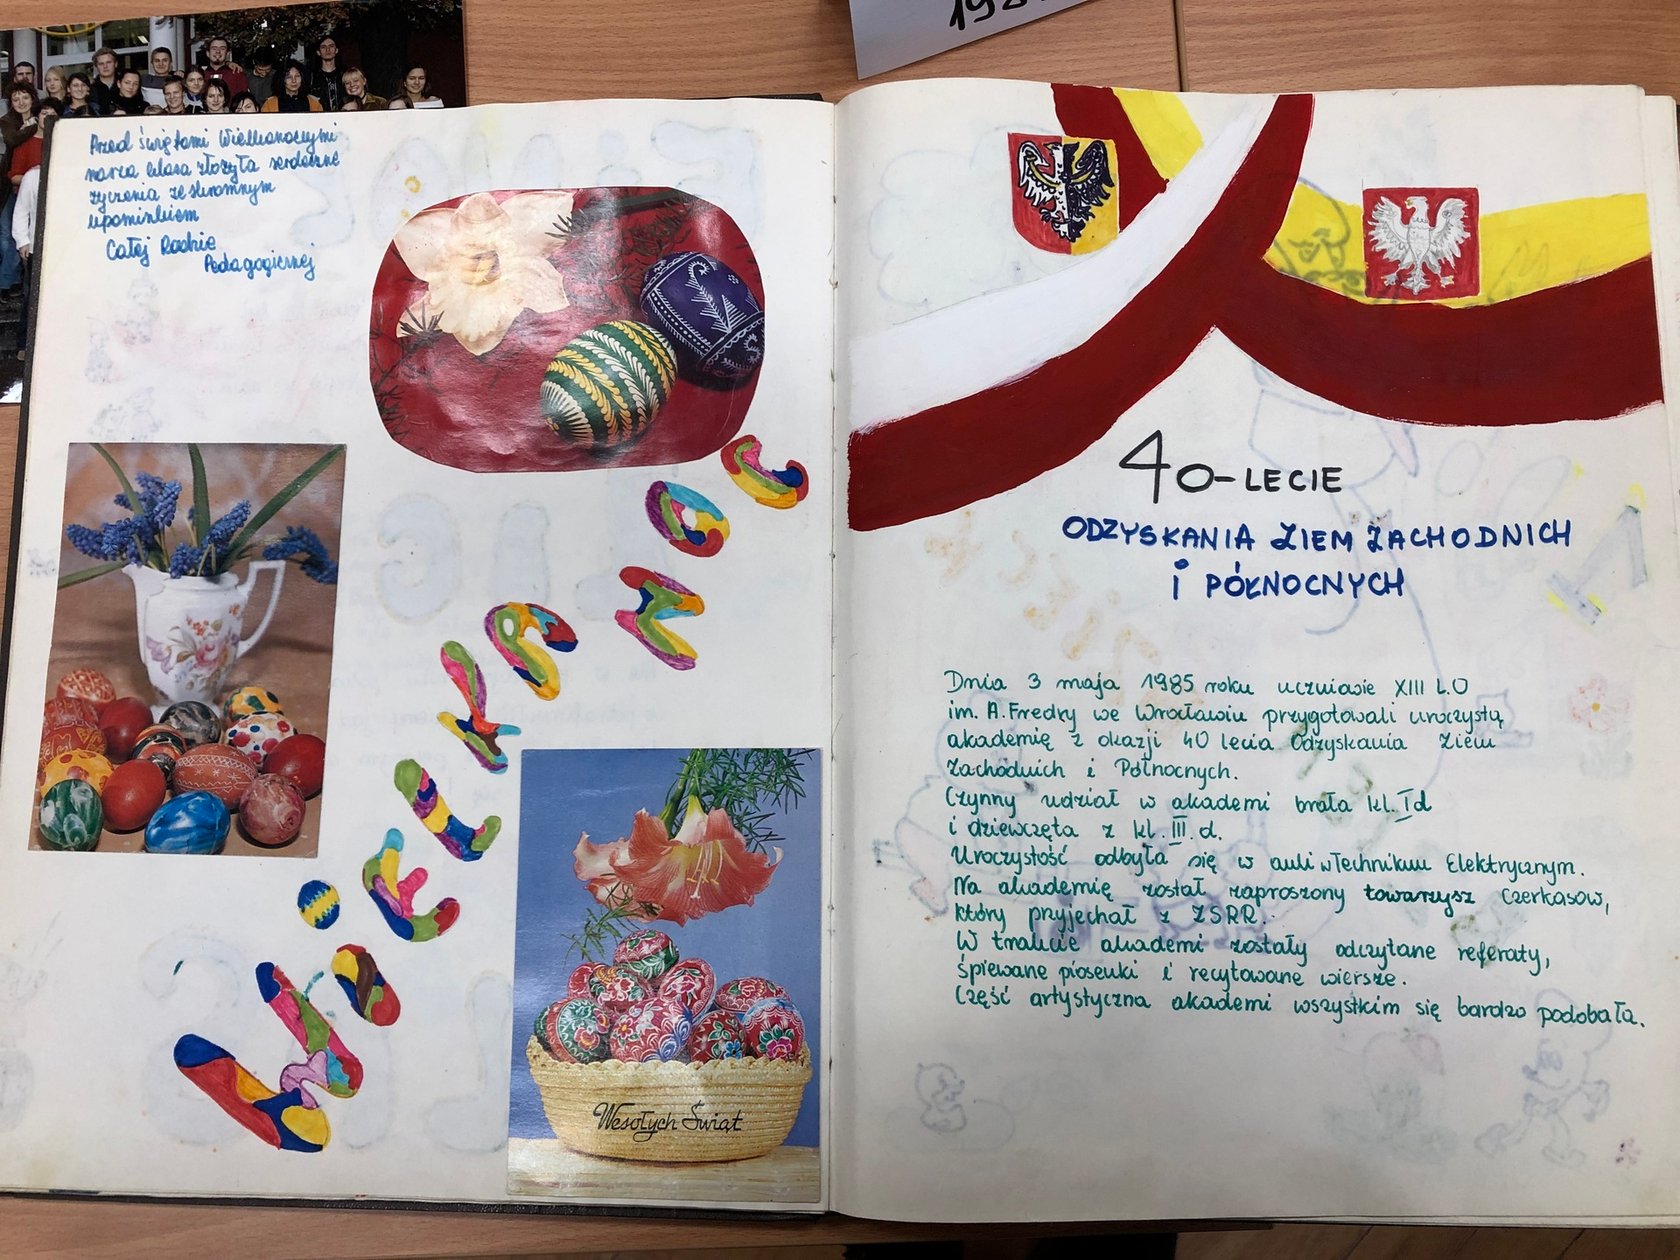 198
Przed świętami Wielkanocnymi
nasza klasa złożyła serdeczne
życzenia ze skromnym
upominkiem
Całej Radzie
Pedagogicznej
WIELKANOC
Wesołych Świąt
40-LECIE
ODZYSKANIA ZIEM ZACHODNICH
i PÓŁNOCNYCH
Dnia 3 maja 1985 roku uczniowie XIII L.O
im. A. Fredry we Wrocławiu przygotowali uroczystą
akademię z okazji 40 lecia Odzyskania Ziem
Zachodnich i Północnych.
Czynny udział w akademi brała kl. Id
i dziewczęta z kl. III. d.
Uroczystość odbyła się w auli w Technikum Elektrycznym.
Na akademię został zaproszony towarzysz Czerkasow,
który przyjechał z ZSRR.
W trakcie akademi zostały odczytane referaty,
śpiewane piosenki i recytowane wiersze.
Część artystyczna akademi wszystkim się bardzo podobała.